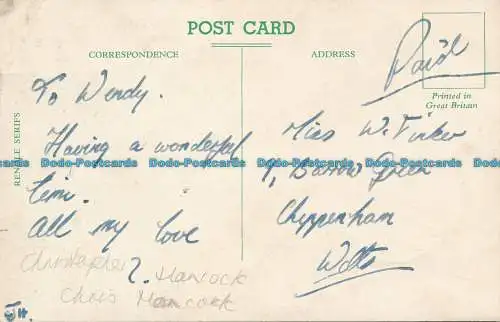 POST CARD
CORRESPONDENCE
ADDRESS
Paid
Printed in
Great Britain
RENDLE SERIES
To Wendy.
Having a wonderful
time.
All my love
?
Christopher Hancock
Chris Hancock
JH.
Miss W. Tinker
1, Barrow Green
Chippenham
Wilts
Dodo-Postcards Dodo-Postcards Dodo-Postcards Dodo-Postcards
Dodo-Postcards Dodo-Postcards Dodo-Postcards Dodo-Postcards